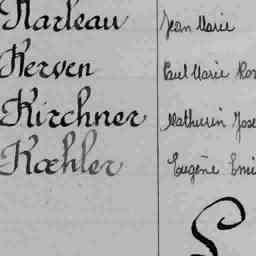 Harleau Jean Marie
Kerven Paul Marie
Kirchner Mathurin
Kœhler Eugène